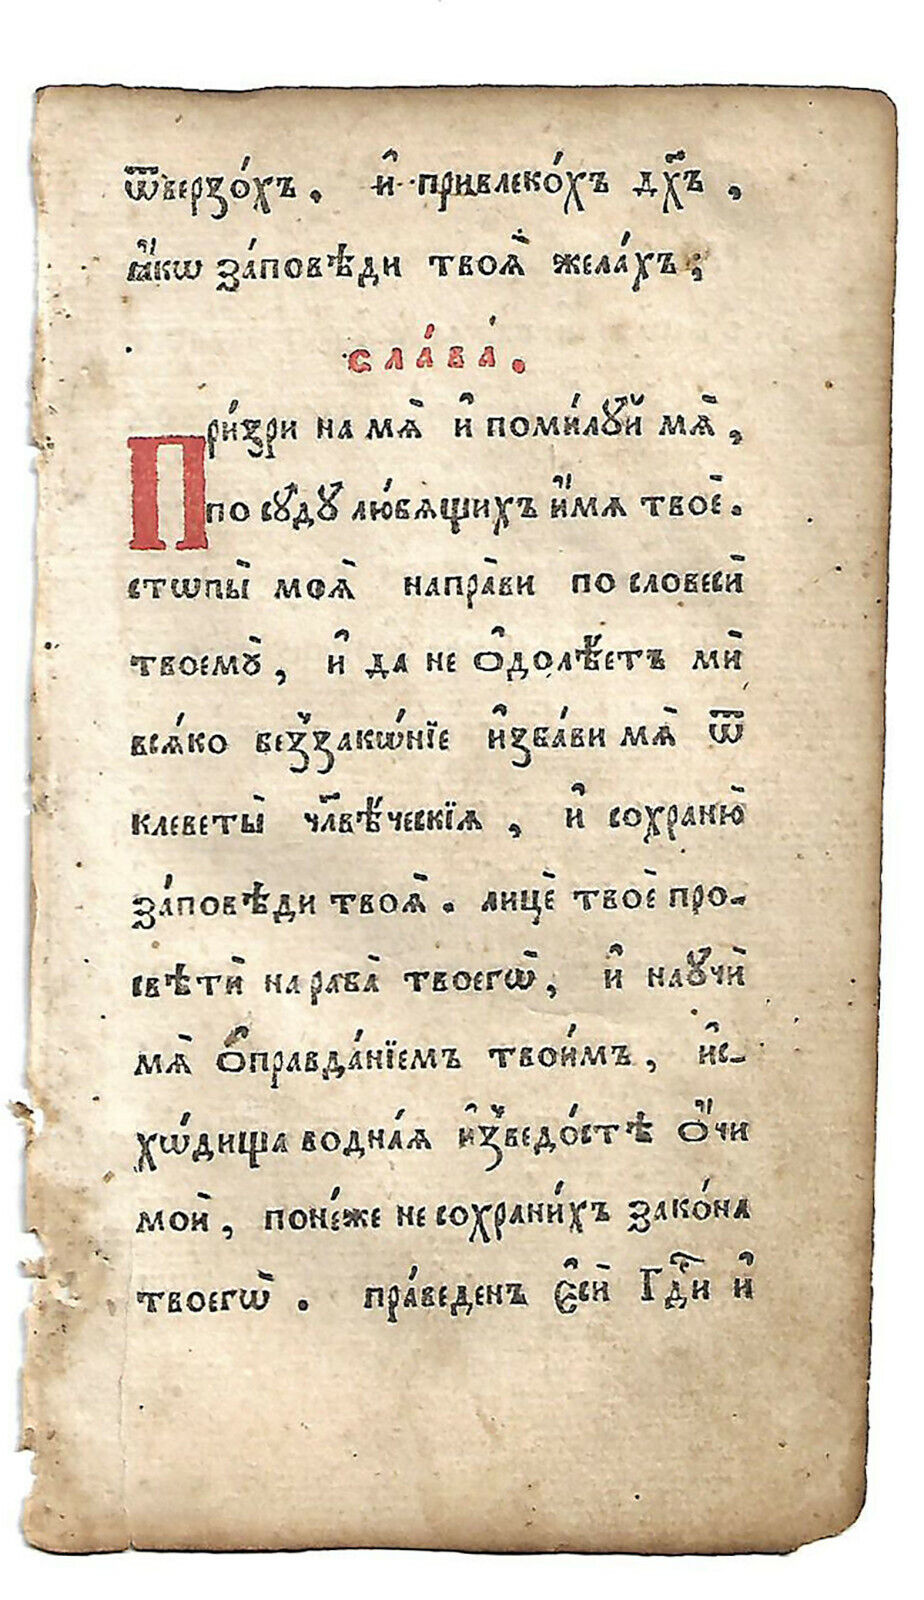 ѿверзо́хъ. и҆ привлеко́хъ дх҃ъ,
ꙗ҆́кѡ за́повѣди твоѧ̀ жела́хъ;
сла́ва.
При́зри на мѧ̀ и҆ поми́лꙋй мѧ̀,
по сꙋдꙋ̀ лю́бѧщихъ и҆́мѧ твоѐ.
стѡпы̀ моѧ̀ напра́ви по словесѝ
твоемꙋ̀, и҆ да не ѻ҆долѣ́етъ мѝ
всѧ́ко беззако́нїе и҆зба́ви мѧ̀ ѿ
клеветы̀ чл҃вѣ́ческїѧ, и҆ сохраню̀
за́повѣди твоѧ̀. лицѐ твоѐ про-
свѣтѝ на раба̀ твоегѡ̀, и҆ наꙋчѝ
мѧ̀ ѻ҆правда́нїемъ твои́мъ, и҆с-
хѡ́дища водна́ѧ и҆зведо́стѣ ѻ҆́чи
моѝ, поне́же не сохрани́хъ зако́на
твоегѡ̀. пра́веденъ є҆сѝ Гдⷭ҇и и҆